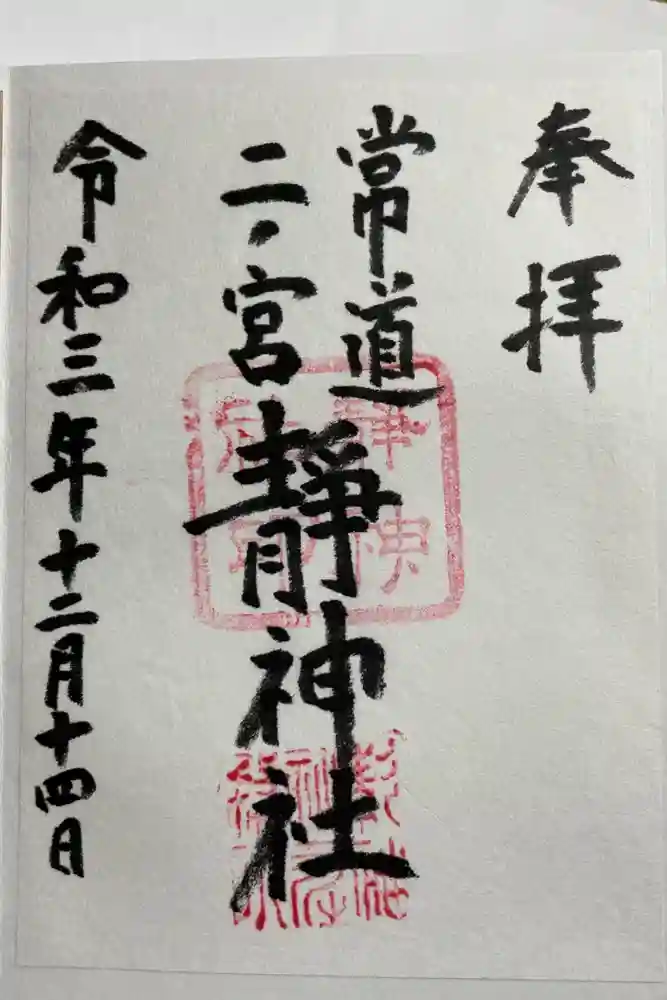 奉拝
常道
二ノ宮
靜神社
令和三年十二月十四日